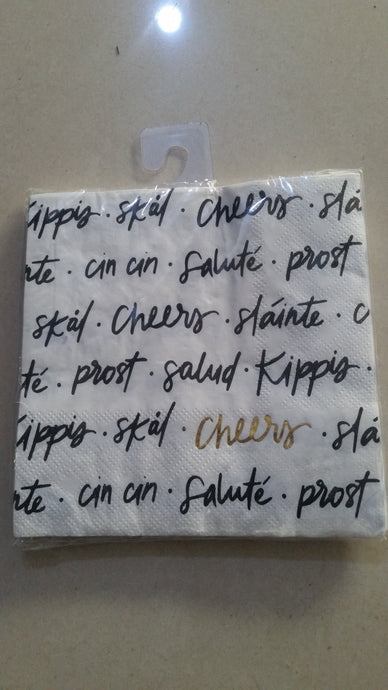 Kippis · skál · Cheers · slá
nte · cin cin · Saluté · prost
skál · Cheers · sláinte · c
té · prost · salud · Kippis ·
Kippis · skál · Cheers · slá
nte · cin cin · Saluté · prost